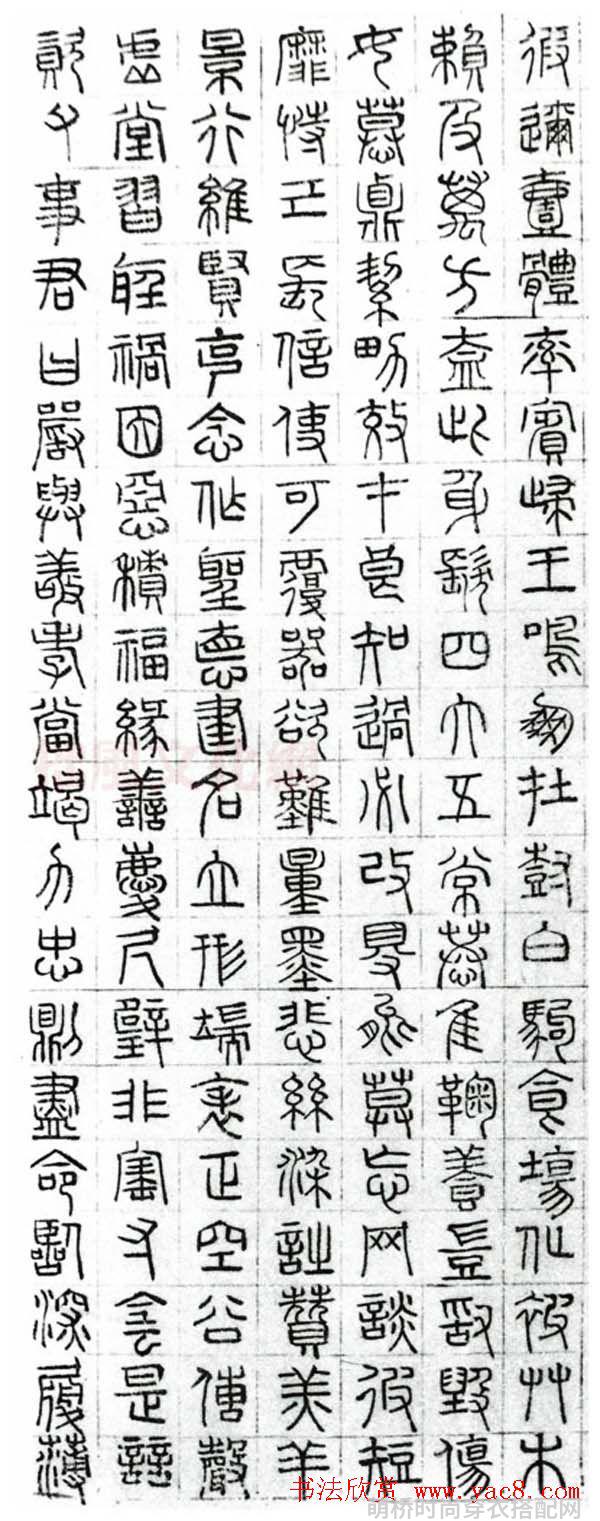 遐邇壹體率賓歸王鳴鳳在樹白駒食場化被艸木
賴及萬方蓋此身髮四大五常恭惟鞠養豈敢毀傷
女慕貞絜男效才良知過必改得能莫忘罔談彼短
靡恃己長信使可覆器欲難量墨悲絲染詩贊羔羊
景行維賢克念作聖德建名立形端表正空谷傳聲
虛堂習聽禍因惡積福緣善慶尺璧非寶寸陰是競
資父事君曰嚴與敬孝當竭力忠則盡命臨深履薄
书法欣赏 www.yac8.com
萌桥时尚穿衣搭配网